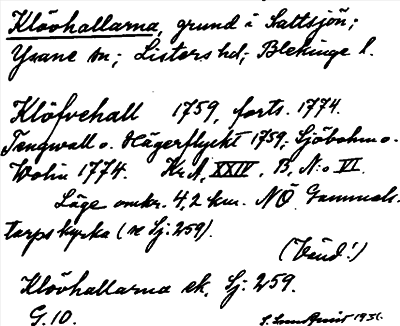 Klövhallarna, grund i Saltsjön;
Ysane sn; Listers hd; Blekinge l.
Klöfvehall 1759, forts. 1774.
Tengwall o. Hägerflyckt 1759; Sjöbohm o.
Wolin 1774. Kr. A, XXIV, B, N:o VI.
Läge omkr. 4,2 km. NÖ Gammals-
torps kyrka (se Sj. 259).
(Vänd!)
Klövhallarna ek. Sj. 259.
G. 10. 1931.